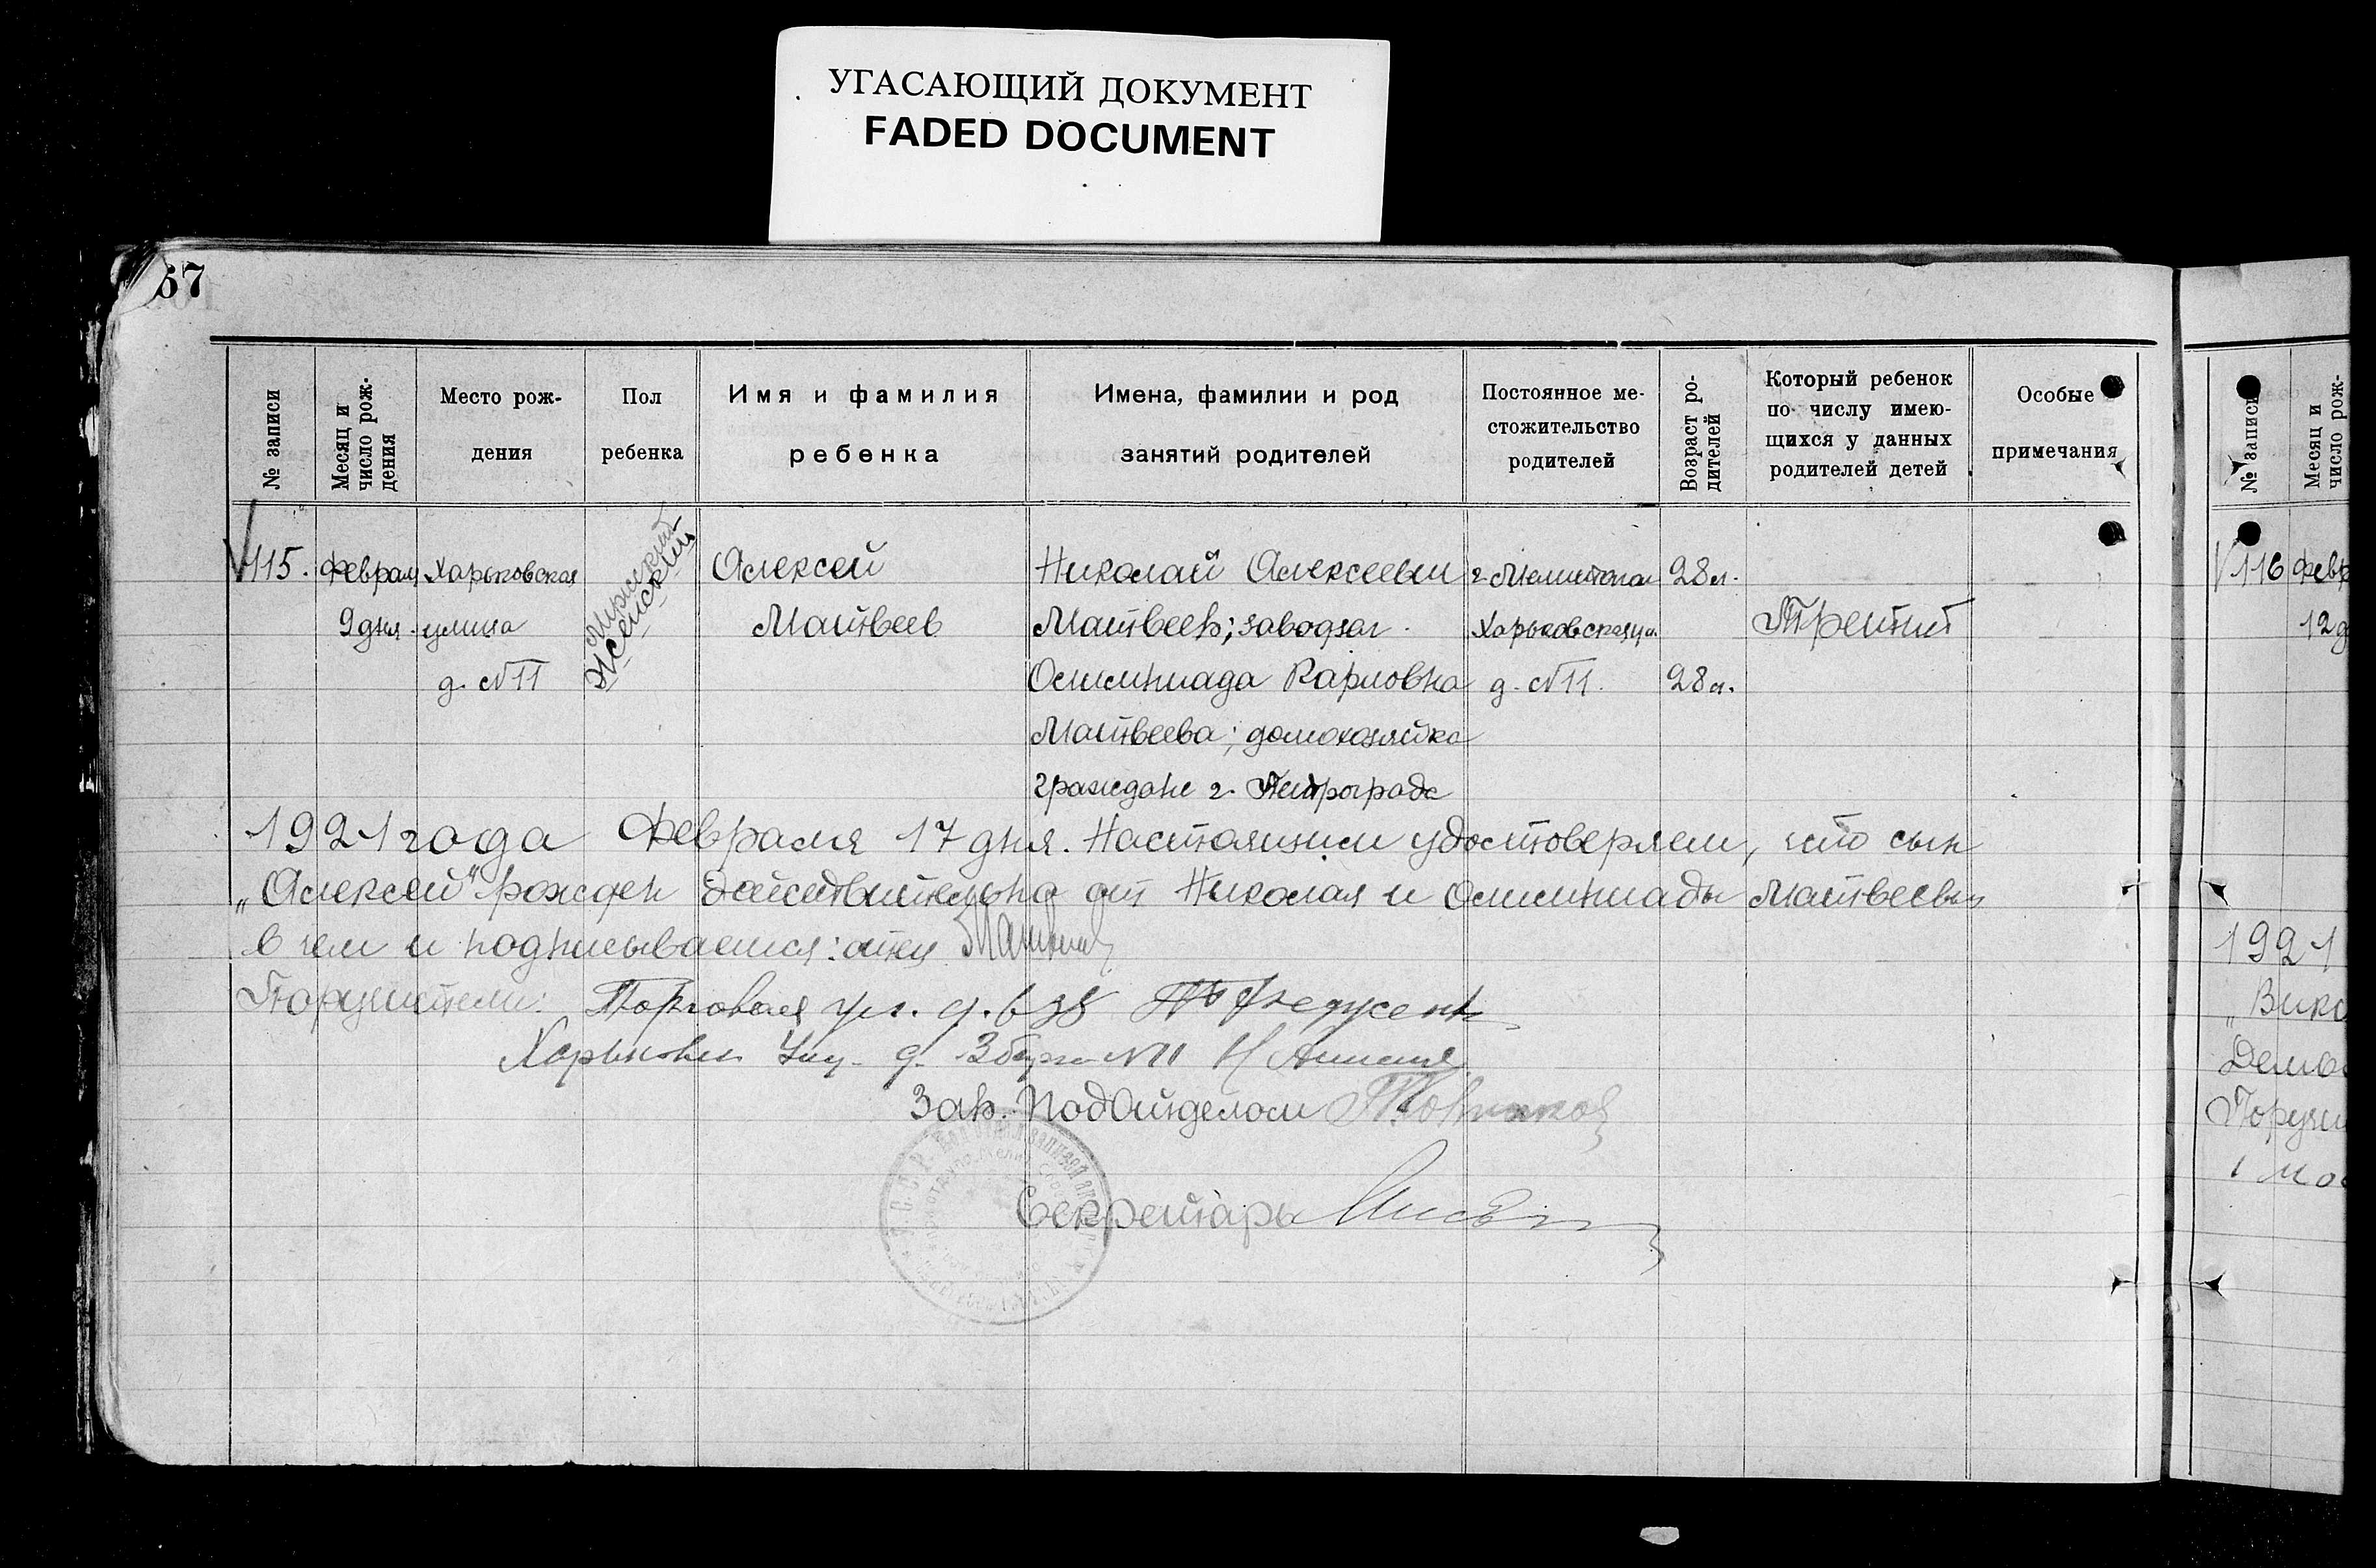 УГАСАЮЩИЙ ДОКУМЕНТ
FADED DOCUMENT
57
№ записи
Месяц и число рож-
дения
Место рож-
дения
Пол
ребенка
Имя и фамилия
ребенка
Имена, фамилии и род
занятий родителей
Постоянное ме-
стожительство
родителей
Возраст ро-
дителей
Который ребенок
по числу имею-
щихся у данных
родителей детей
Особые
примечания
115.
Февраля
9 дня.
Харьковская
улица
д. №11
Мужской
Женский
Алексей
Матвеев
Николай Алексеевич
Матвеев; завод
Олимпиада Карловна
Матвеева; домохозяйка
граждане г. Петрограда
г. Мелитополь
Харьковская ул.
д. №11.
28 л.
28 л.
Третий
1921 года Февраля 17 дня. Настоящим удостоверяем, что сын
„Алексей" рожден действительно от Николая и Олимпиады Матвеевых
в чем и подписываемся: отец Матвеев
Поручители: Торговая ул. д.
Харьковск ул. д. №11
Зав. ПодОтделом
Секретарь
№ записи
Месяц и
число рож-
116
Февр
12 д
1921
„Викт
Поручи